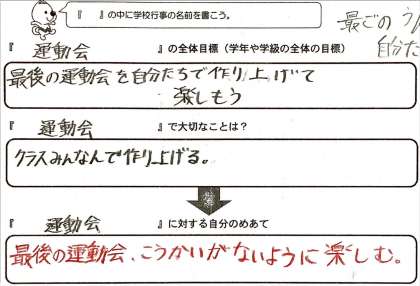 『　』の中に学校行事の名前を書こう。
最ごのう
自分た
『 運動会 』の全体目標（学年や学級の全体の目標）
最後の運動会を自分たちで作り上げて
楽しもう
『 運動会 』で大切なことは？
クラスみんなんで作り上げる。
『 運動会 』に対する自分のめあて
最後の運動会、こうかいがないように楽しむ。